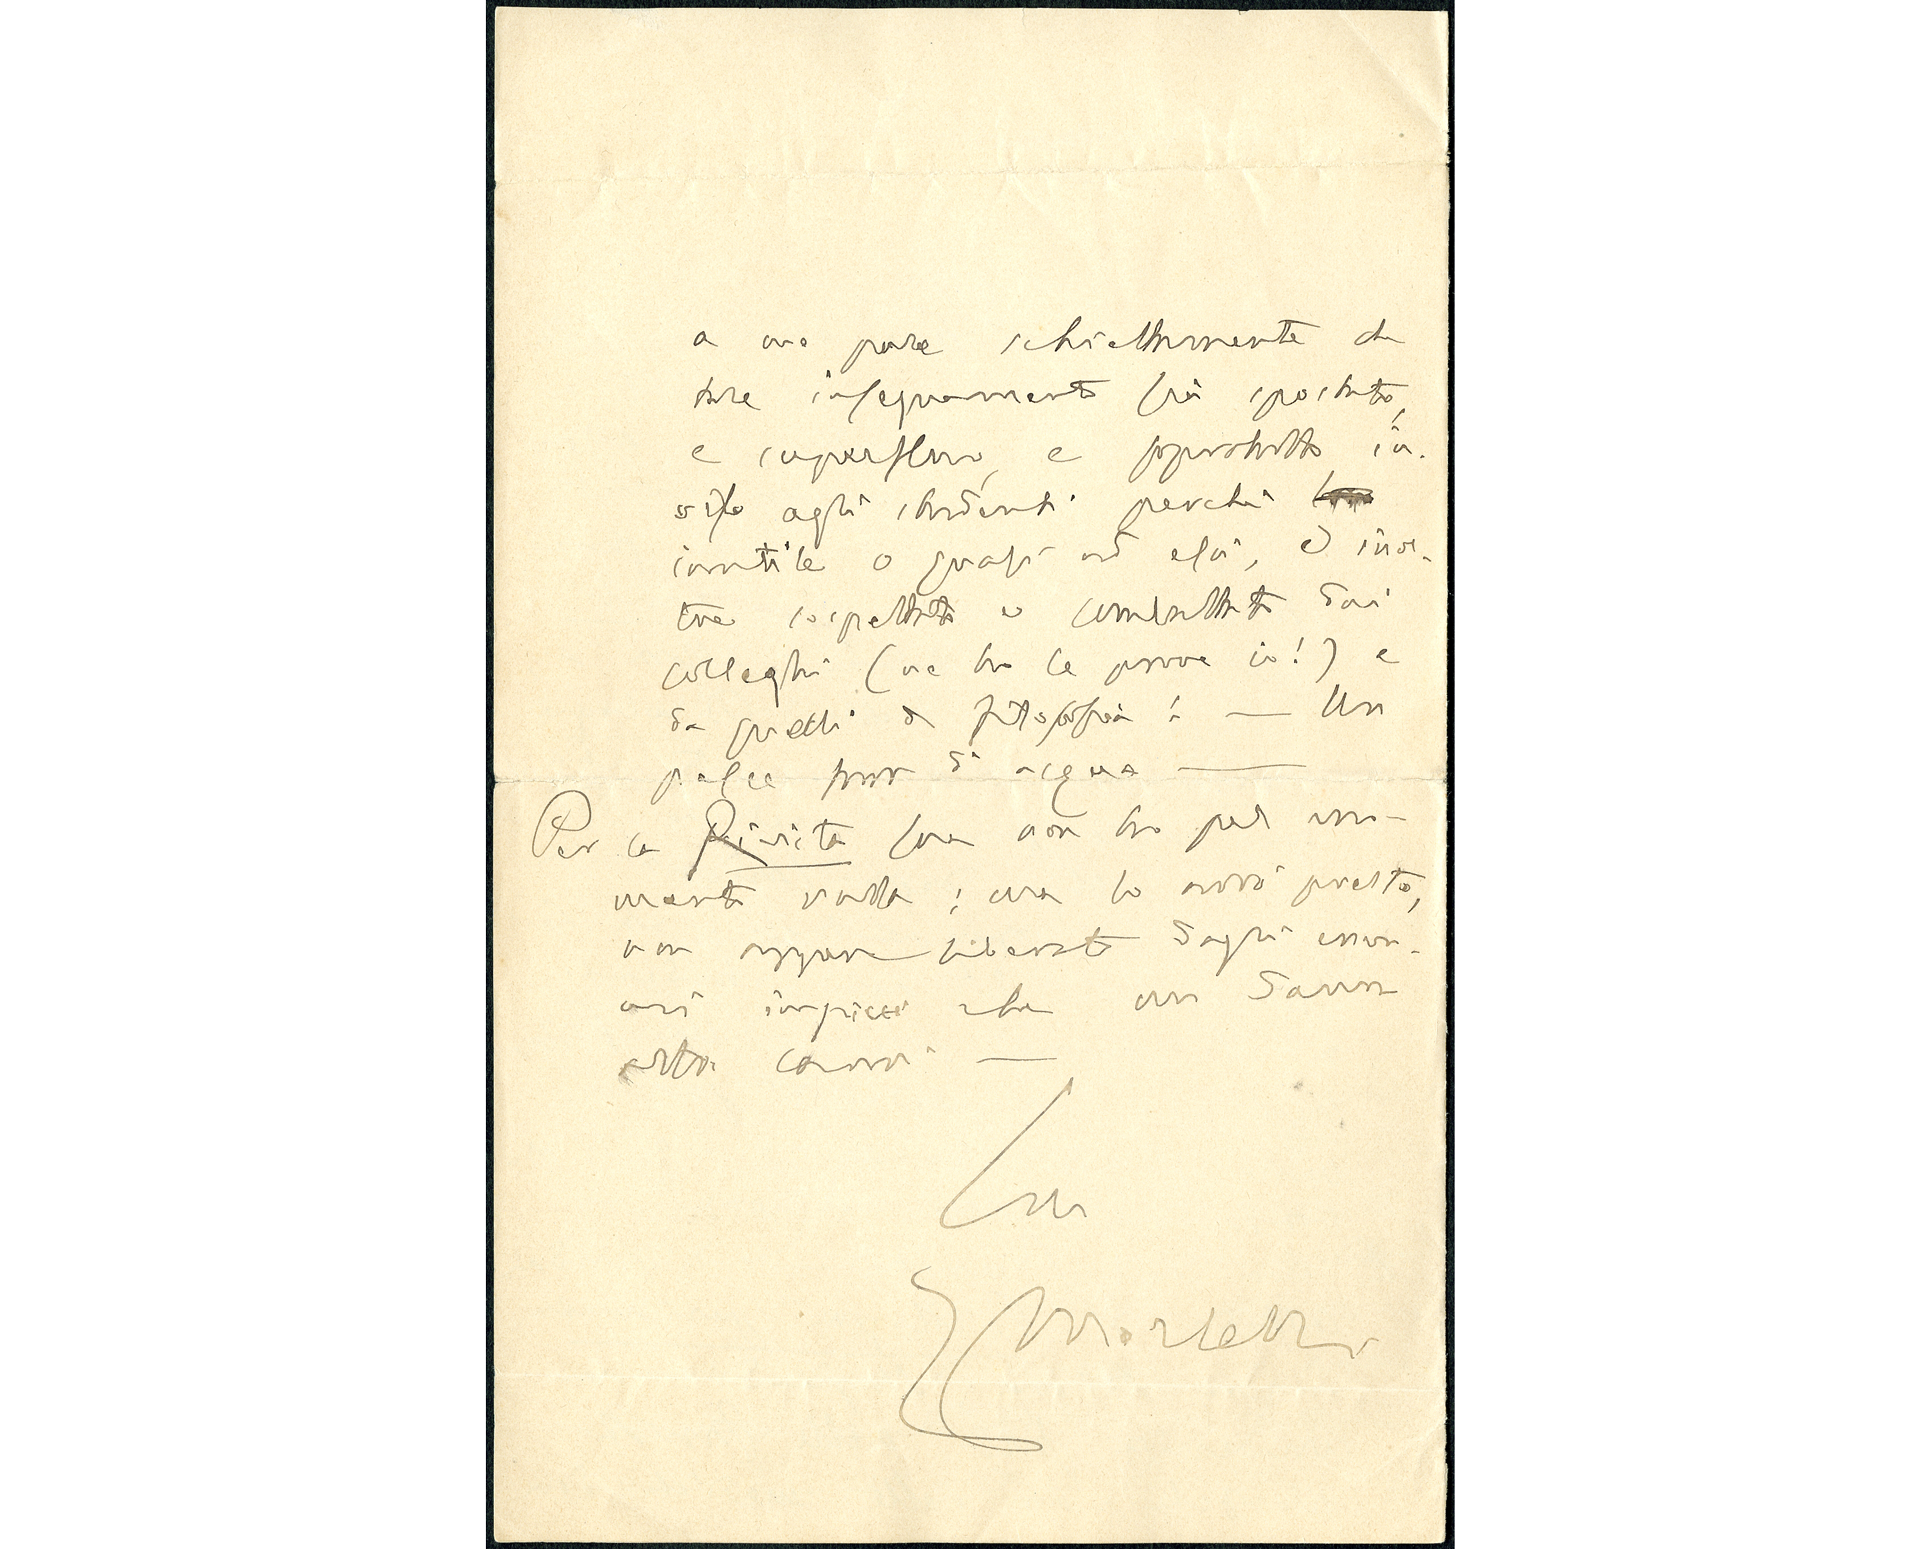 a me pare schiettamente che
tale insegnamento sia spostato,
e superfluo, e soprattutto in-
viso agli studenti perchè
inutile o quasi ad essi, ed inol-
tre sospettato e combattuto dai
colleghi (ne ho le prove io!) e
da quelli di filosofia! — Un
pesce fuor di acqua —
Per la Rivista sua non ho pel mo-
mento nulla; ma lo avrà presto,
non appena liberato dagli
impicci che mi danno
altri lavori —
Suo
EMorselli